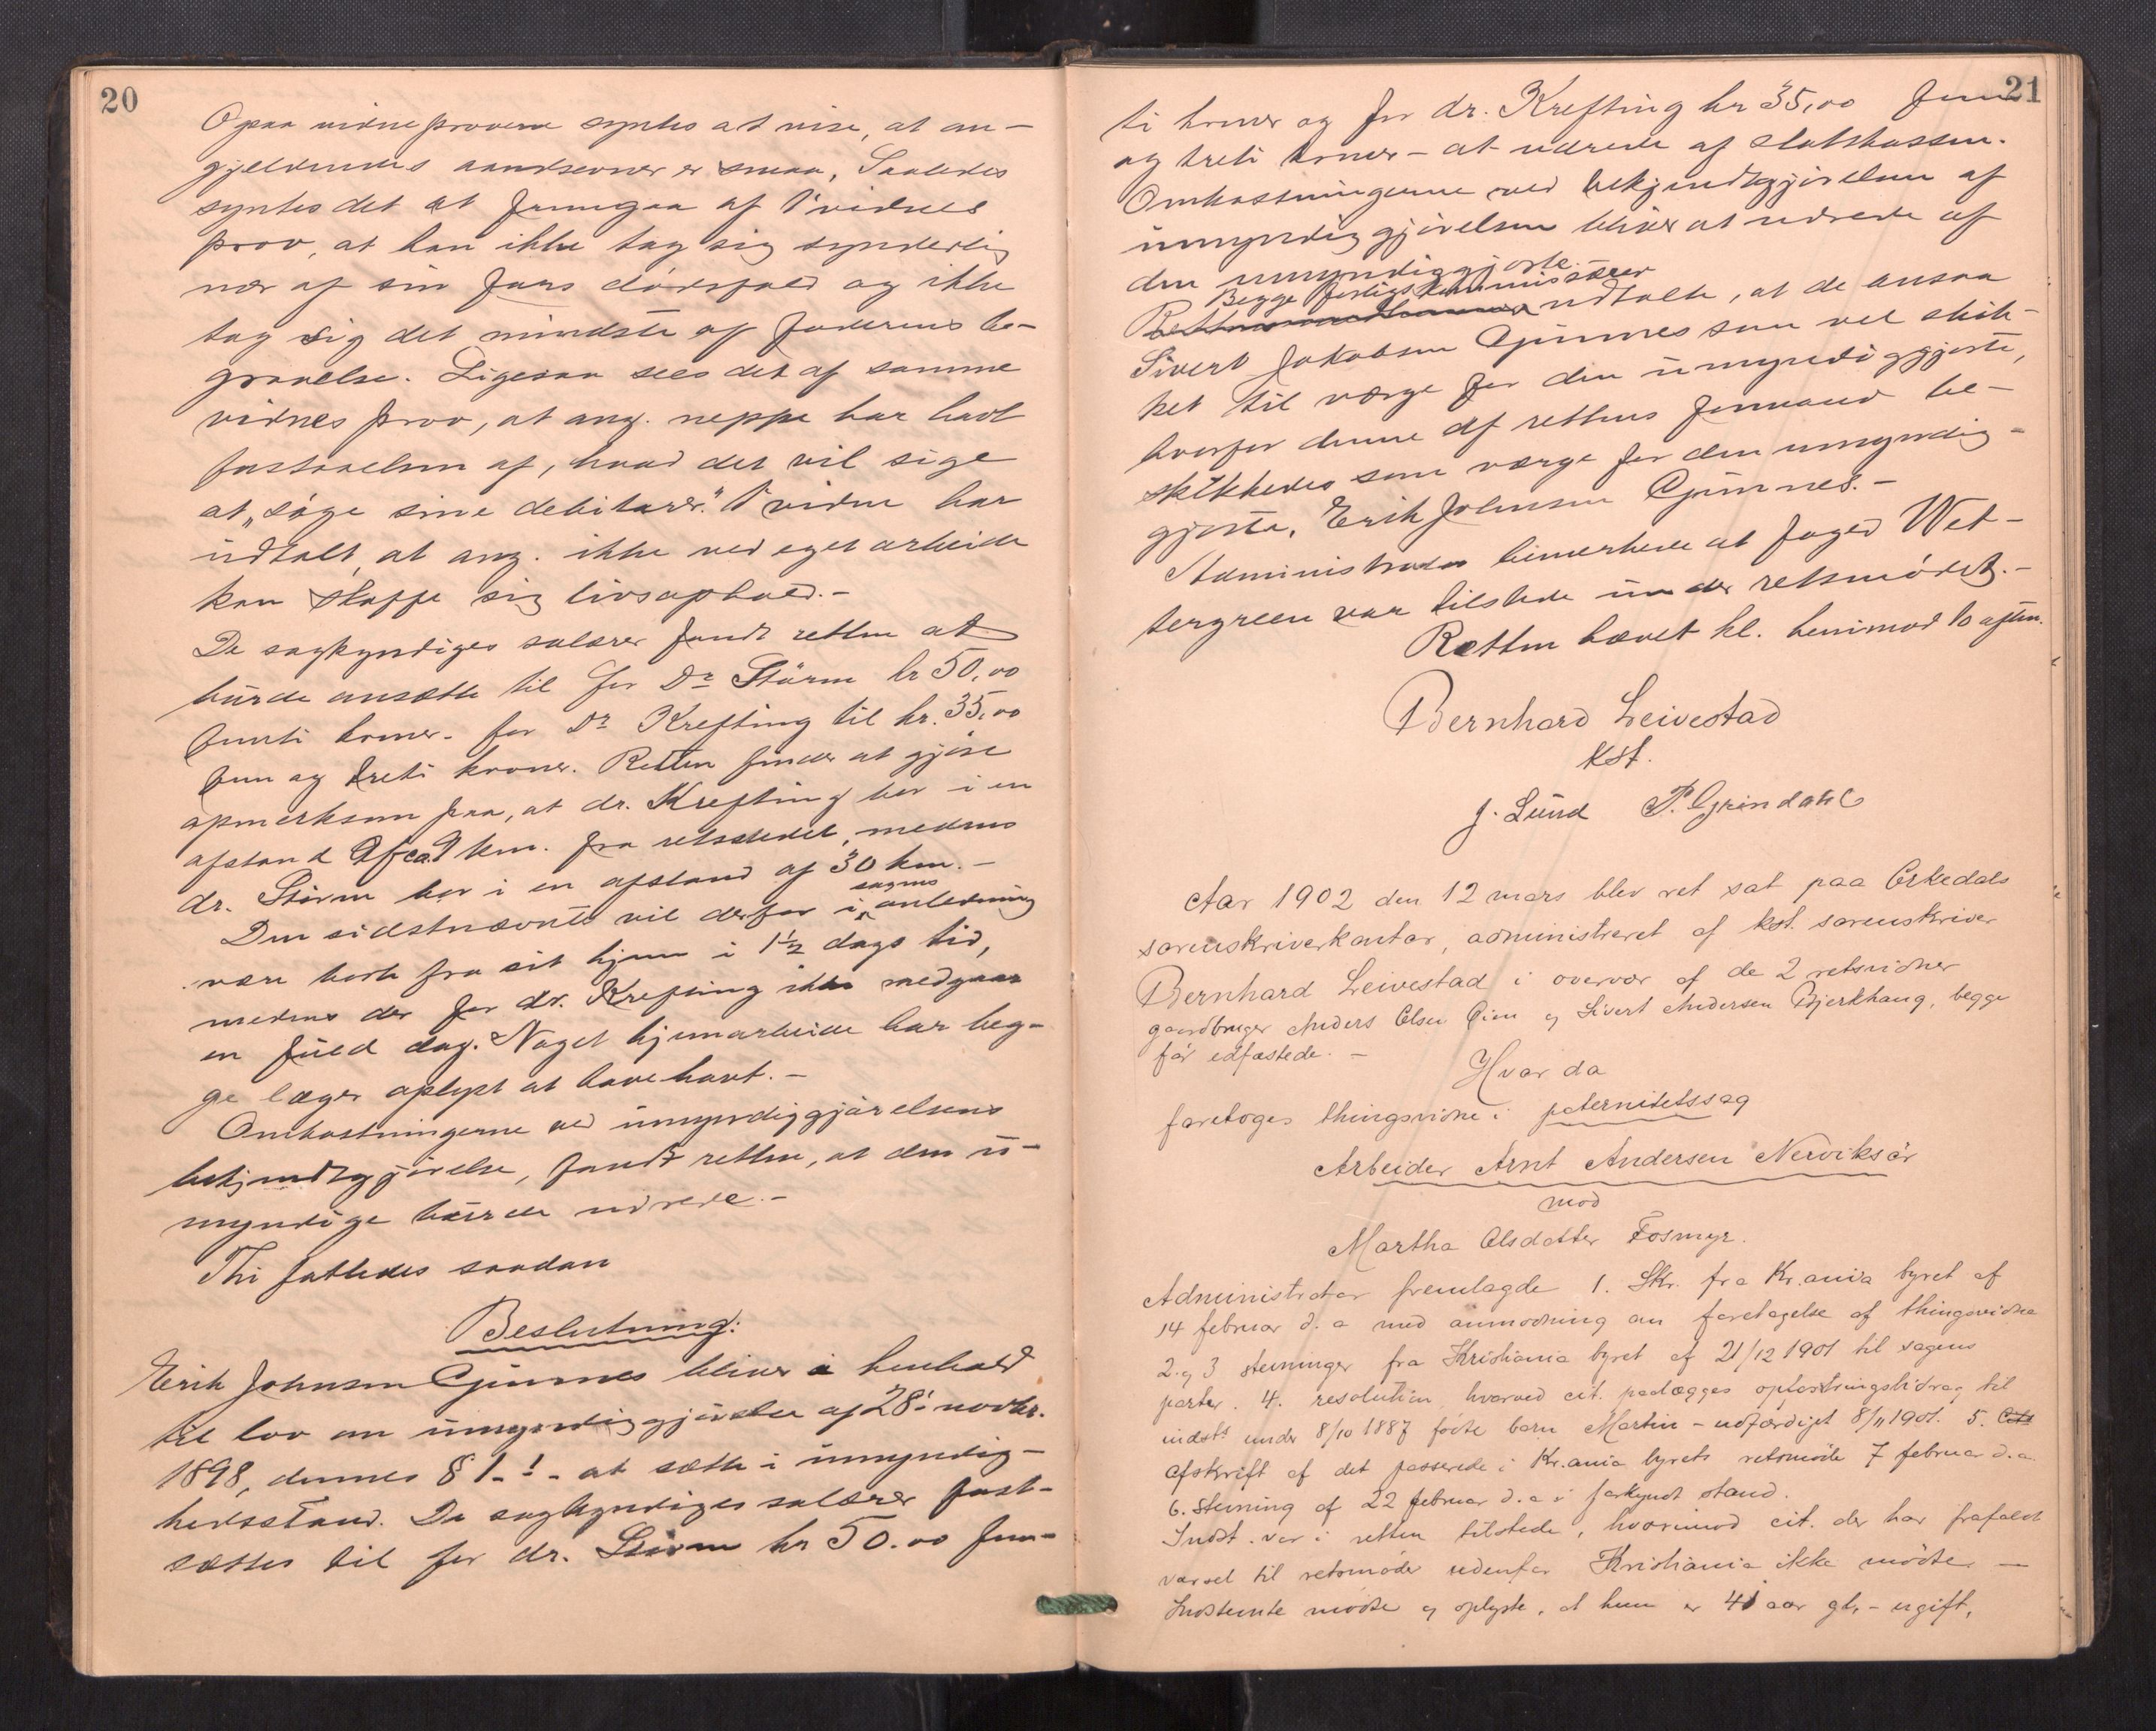 20
Ogsaa vidneprovene syntes at vise, at an-
gjeldendes aandsevner er smaa. Saaledes
syntes det at fremgaa af 1 vidnes
prov, at han ikke tog sig synderlig
nær af sin fars dødsfald og ikke
tog sig det mindste af faderens be-
gravelse. Ligesaa sees det af samme
vidnes prov, at ang. neppe har havt
forstaaelsen af, hvad det vil sige
at „søge sine debitorer." 1 vidne har
udtalt, at ang. ikke ved eget arbeide
kan skaffe sig livsophold.-
De sagkyndiges salærer fandt retten at
burde ansætte til for Dr Størm kr 50,00
femti kroner. for Dr Krefting til kr. 35,00
fem og treti kroner. Retten finder at gjøre
opmerksom paa, at dr. Krefting bor i en
afstand af ca 9 km. fra retsstedet, medens
dr. Størm bor i en afstand af 30 km.-
Den sidstnævnte vil derfor i sagens anledning
være borte fra sit hjem i 1½ dags tid,
medens der for dr. Krefting ikke medgaar
en fuld dag. Noget hjemarbeide har beg-
ge læger oplyst at have havt.-
Omkostningerne ved umyndiggjørelsens
bekjendtgjørelse, fandt retten, at den u-
myndige burde udrede.-
Thi fattedes saadan
Beslutning:
Erik Johnsen Gjinnes bliver i henhold
til lov om umyndiggjørelse af 28. novbr.
1898, dennes § 1-1- at sætte i umyndig-
hedsstand. De sagkyndiges salærer fast-
sættes til for dr. Størm kr 50.00 fem-
21
ti kroner og for dr. Krefting kr 35,00 fem
og treti kroner - at udrede af statskassen.
Omkostningerne ved bekjendtgjørelsen af
umyndiggjørelsen bliver at udrede af
den umyndiggjorte.
Begge forligskommissærer
udtalte, at de ansaa
Sivert Jakobsen Gjinnes som vel skik-
ket til værge for den umyndiggjorte,
hvorfor denne af rettens formand be-
skikkedes som værge for den umyndig-
gjorte, Erik Johnsen Gjinnes.-
Administrator bemerkede at foged Wet-
tergreen var tilstede under retsmødet.-
Retten hævet kl. henimod 10 aften.
Bernhard Leivestad
kst.
J. Lund P. Grindahl
Aar 1902 den 12 mars blev ret sat paa Orkedals
sorenskriverkontor, administreret af kst. sorenskriver
Bernhard Leivestad i overvær af de 2 retsvidner
gaardbruger Anders Olsen Øien og Sivert Andersen Bjerkhaug, begge
før edfæstede.-
Hvor da
foretoges thingsvidne i paternitetssag
Arbeider Arnt Andersen Nerviksør
mod
Martha Olsdatter Fosmyr.
Administrator fremlagde 1. Skr. fra Kr.ania byret af
14 februar d.a med anmodning om foretagelse af thingsvidne
2. og 3 stevninger fra Kristiania byret af 21/12 1901 til sagens
parter. 4. resolution hvorved cit. paalægges opfostringsbidrag til
indsts under 8/10 1887 fødte barn Martin - udfærdiget 8/11 1901. 5.
Afskrift af det passerede i Kr.ania byrets retsmøde 7 februar d.a.
6. Stevning af 22 februar d.a i forkyndt stand.
Indst. var i retten tilstede, hvorimod cit. der har frafaldt
varsel til retsmøder udenfor Kristiania ikke mødte -
Indstevnte mødte og oplyste, at hun er 41 aar gl. - ugift,